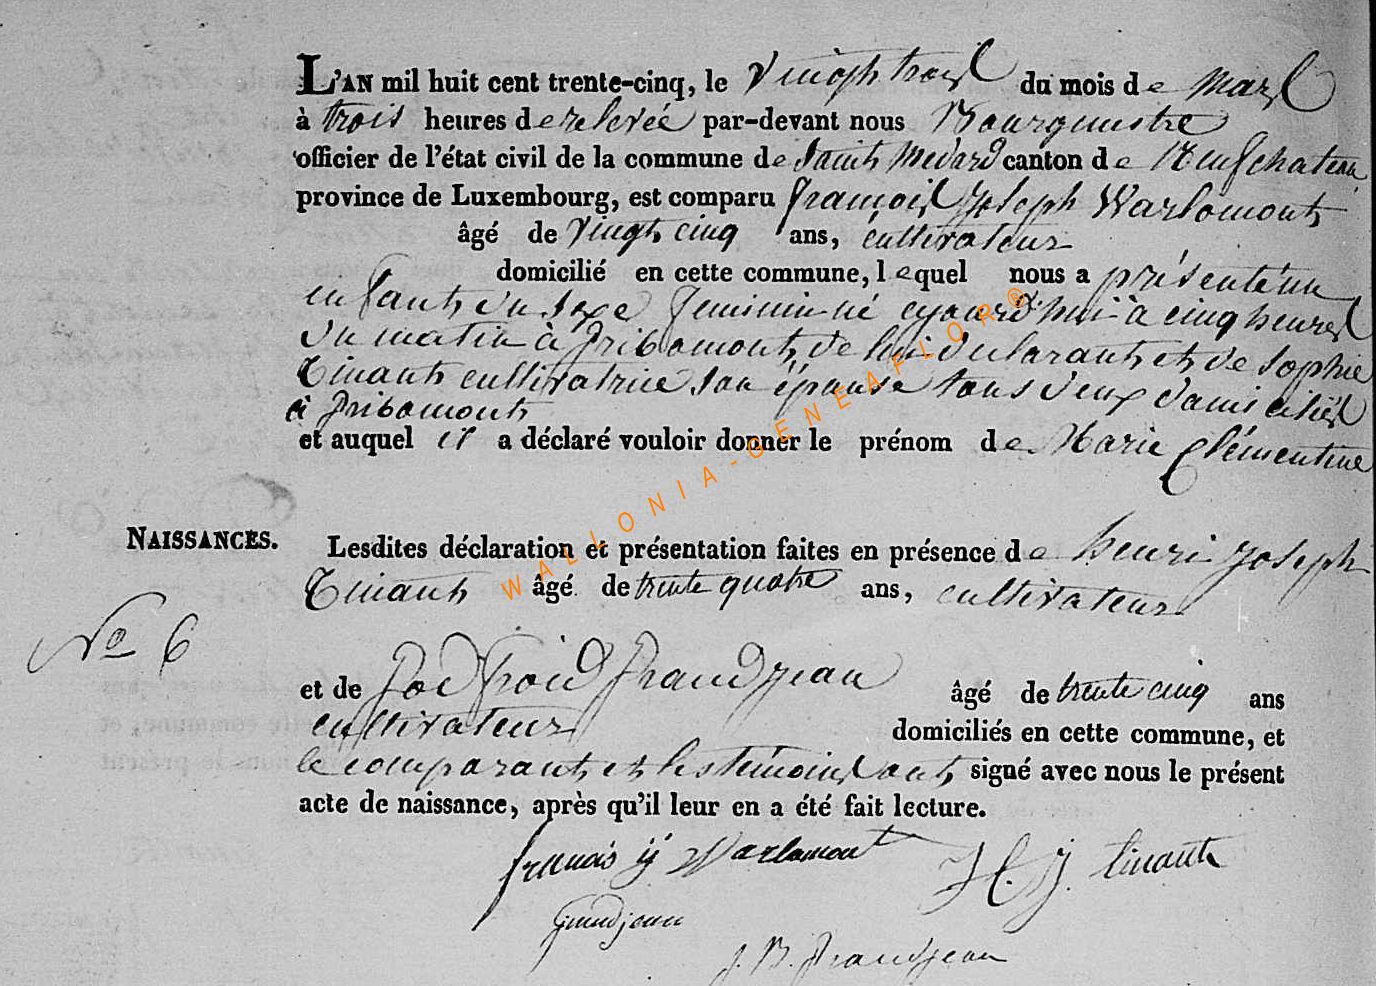 L'AN mil huit cent trente-cinq, le vingt trois du mois de mars
à trois heures de relevée par-devant nous Bourgmestre
officier de l'état civil de la commune de Saint Médard canton de Neufchateau
province de Luxembourg, est comparu françois Joseph Warlomont
âgé de vingt cinq ans, cultivateur
domicilié en cette commune, lequel nous a présenté un
enfant du sexe feminin né cejourd'hui à cinq heures
du matin à Gribomont, de lui déclarant et de Sophie
Tinant cultivatrice son épouse tous deux domiciliés
à Gribomont
et auquel il a déclaré vouloir donner le prénom de Marie Clémentine
NAISSANCES.
Lesdites déclaration et présentation faites en présence de henri Joseph
Tinant âgé de trente quatre ans, cultivateur
No 6
et de Godfroid Grandjean âgé de trente cinq ans
cultivateur domiciliés en cette commune, et
le comparant et les témoins ont signé avec nous le présent
acte de naissance, après qu'il leur en a été fait lecture.
francois js Warlomont H. J. tinant
Grandjean
J. B. Grandjean
WALLONIA-GENEAFLOR®